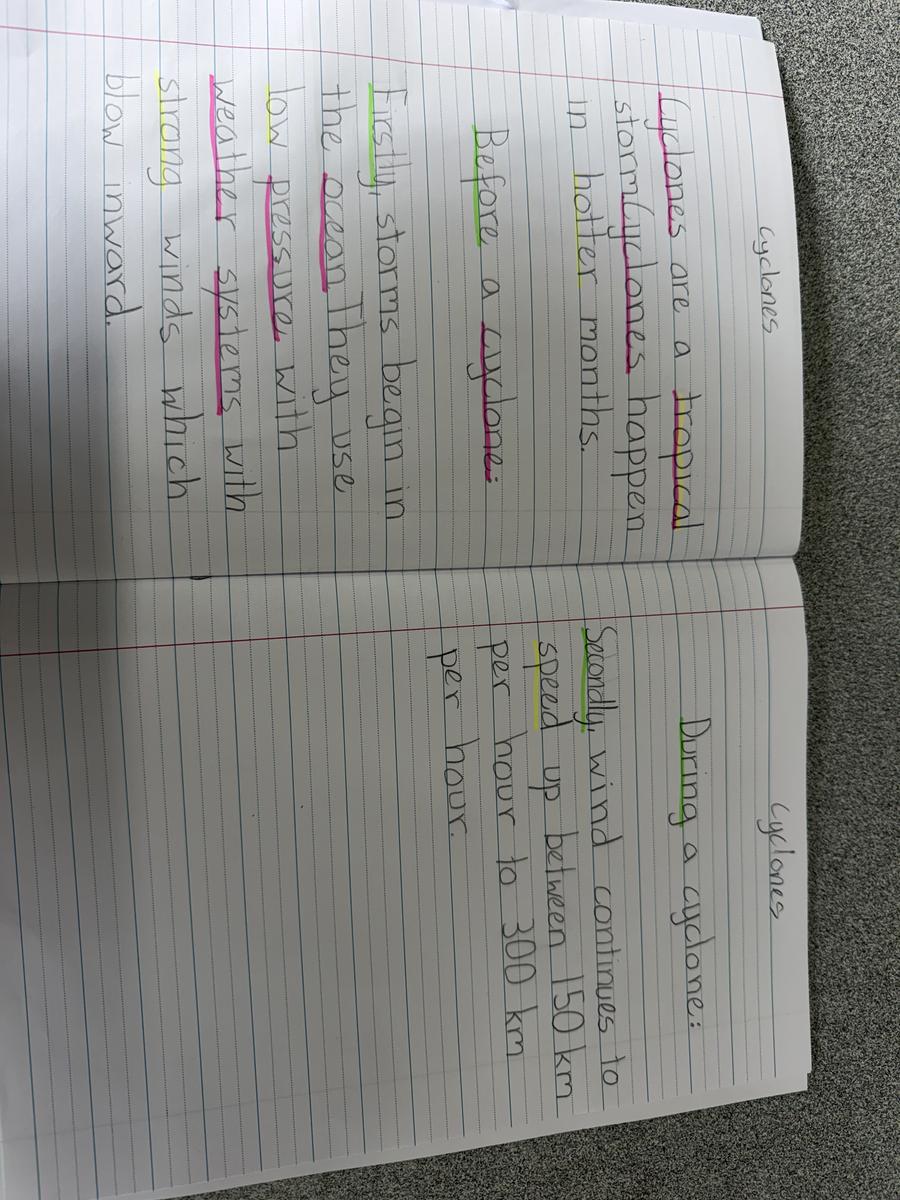 Cyclones
Cyclones are a tropical
storm Cyclones happen
in hotter months.
Before a cyclone:
Firstly, storms begin in
the ocean They use
low pressure with
weather systems with
strong winds which
blow inward.
Cyclones
During a cyclone:
Secondly, wind continues to
speed up between 150 km
per hour to 300 km
per hour.